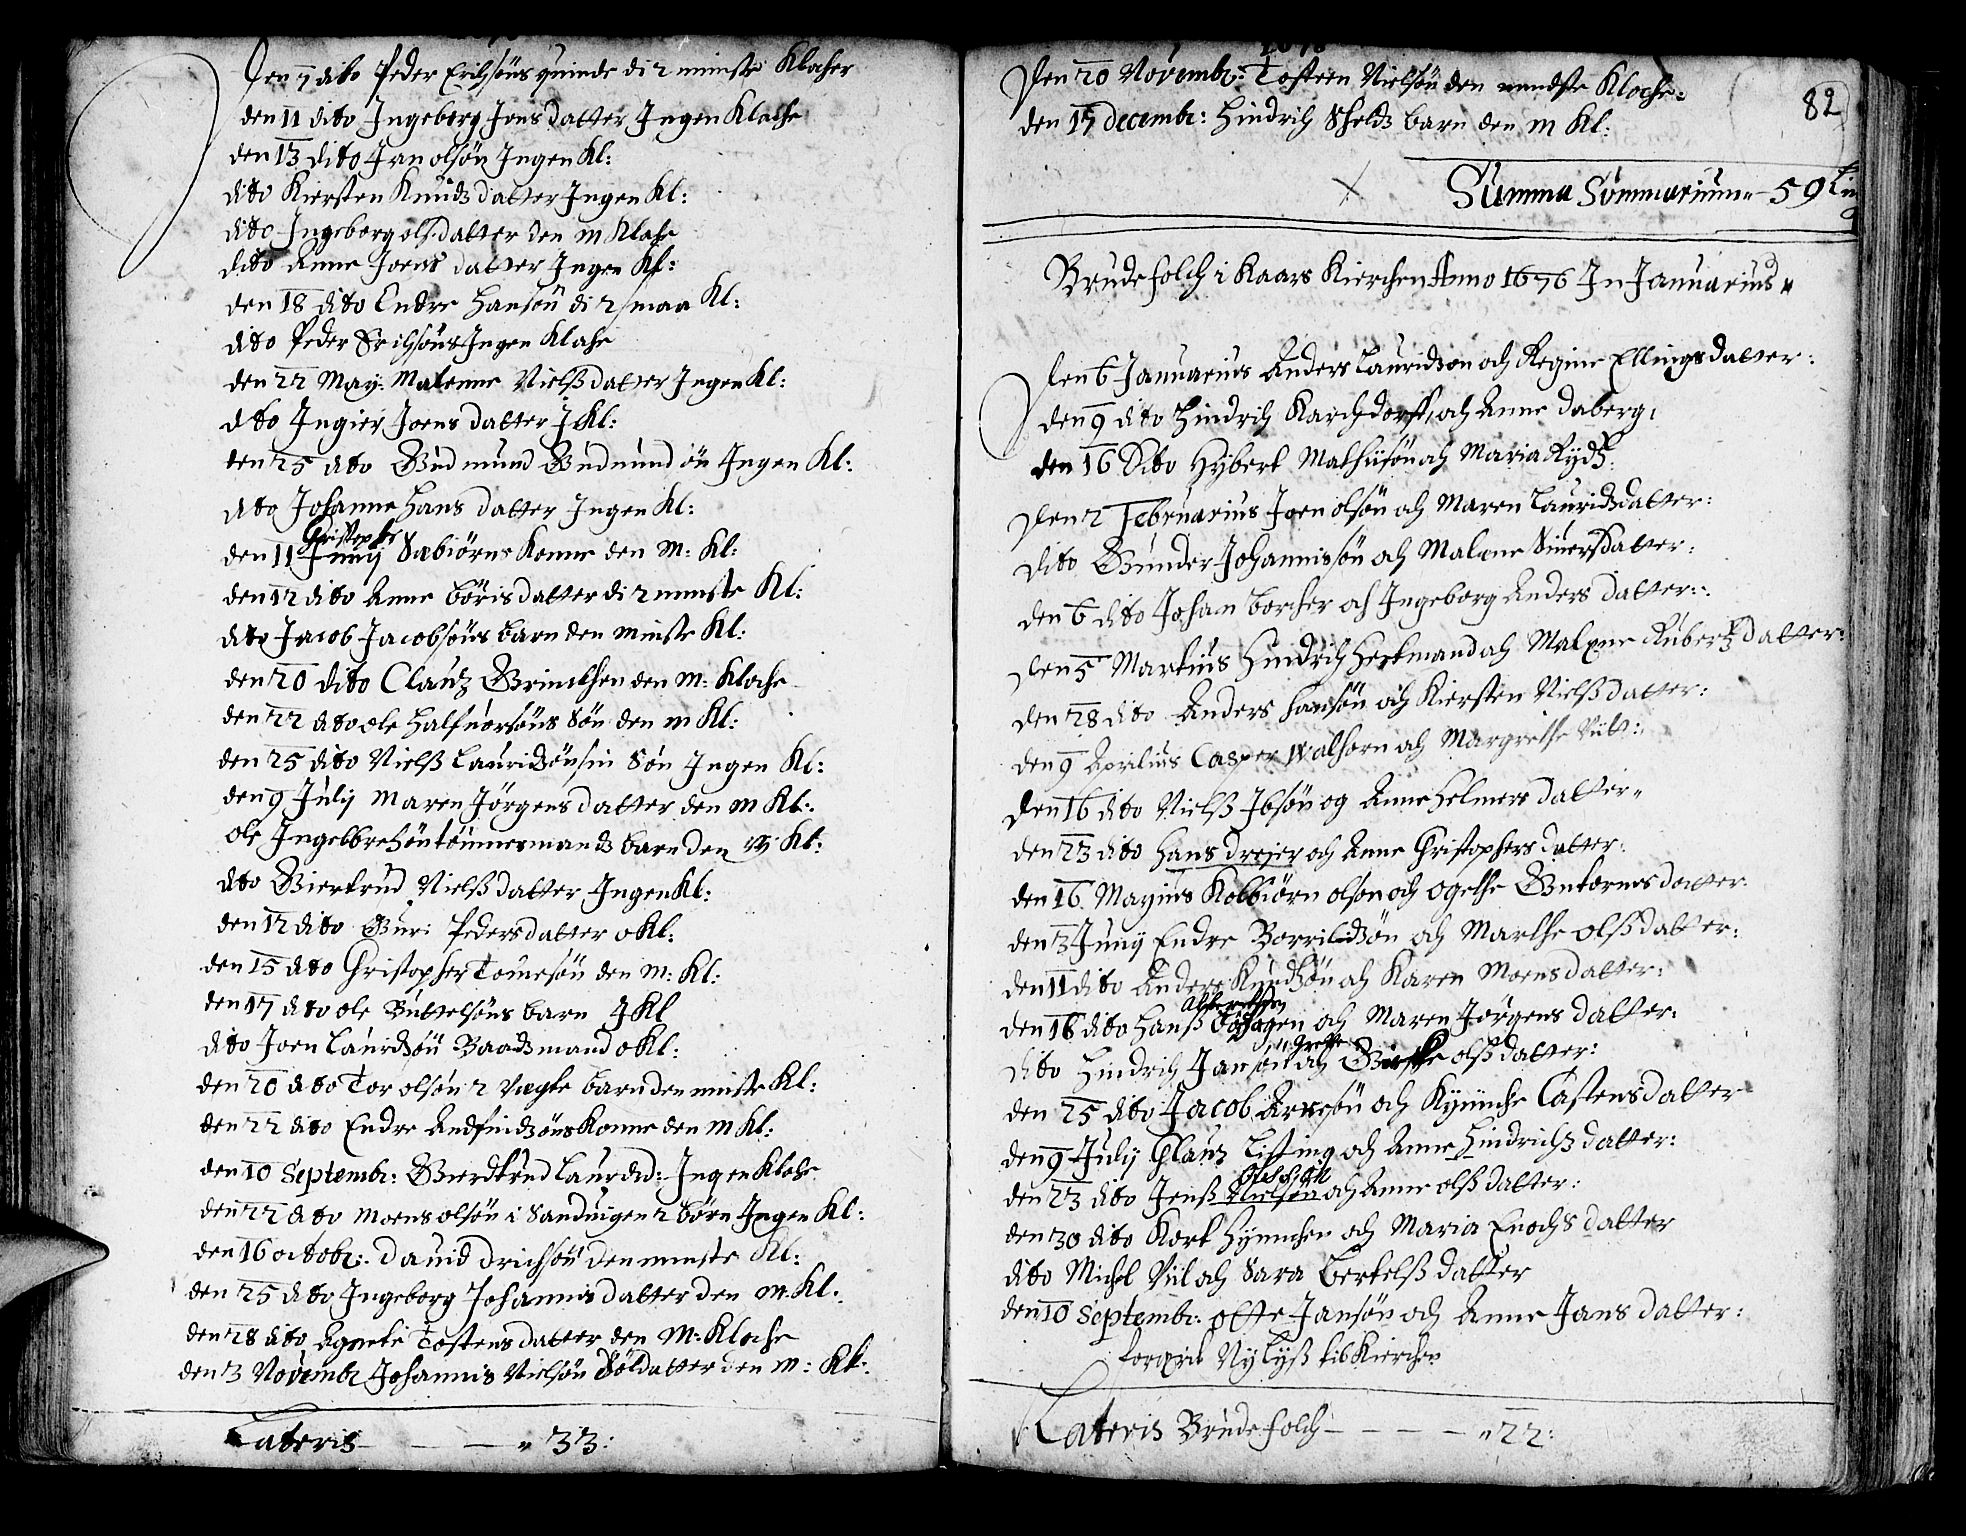 Den 7 dito Peder Erichsøns quinde di 2 minste Klocher
den 11 dito Ingeborg Jens datter Ingen Klache
den 13 dito Jan olsøn Ingen Kl:
dito Kiersten Knuds datter Ingen Kl:
dito Ingeborg ols datter den m Klache
dito Anne Joens datter Ingen Kl:
den 18 dito Endre Hansøn di 2 smaa Kl:
dito Peder Erichsøns Ingen Klache
den 22 May: Malenne Nielß datter Ingen Kl:
dito Ingier Joens datter J Kl:
den 25 dito Gudmund Gudmundsøn Ingen Kl:
dito Johanne Hans datter Ingen Kl:
Christopher
den 11 Junij Sæbiørns Konne den M: Kl:
den 12 dito Anne Børis datter di 2 minste Kl:
dito Jacob Jacobsøns barn den minste Kl:
den 20 dito Clautz Grimelsen den M: Kloche
den 22 dito ole Halfuorsøns Søn den m Kl:
den 25 dito Nielß Lauridsøns Søn Ingen Kl:
den 9 Julij Maren Jørgens datter den M Kl:
ole Ingelbretsøn tømmermands barn den M Kl:
dito Giertrud Nielß datter Ingen Kl:
den 12 dito Guri Peders datter o Kl:
den 15 dito Christopher Tomesøn den M: Kl:
den 17 dito ole Buttelsøns barn J Kl
dito Joen Lauridsøn Baadsmand o Kl:
den 20 dito Tor olsøn 2 Negte barn den minste Kl:
den 22 dito Endre Andfindsøns Konne den M Kl:
den 10 Septembr: Gierdtrud Laurdtd: Ingen Kloche
den 22 dito Moens olsøn i Sanduigen 2 børn Ingen Kl:
den 16 octobr: Dauid Drichsøn den minste Kl:
den 25 dito Ingeborg Johannis datter den M. Kl.
den 28 dito Agnete Tostens datter den M: Kloche
den 3 Novembr Johannis Nielsøn Soldatter den M: Kl:
Lateris - - - " 33:
82
Den 20 Novembr: Tosteen Nielsøn den mindste Kloche:
den 15 decembr: Hindrich Skelds barn den M Kl:
Summa Sommarium - 59
Brudefolch i Kaars Kierchen Anno 1676 In Januarius
den 6 Januarius Anders Lauridson och Regine Ellings datter:
den 9 dito Hindrich Karchdorff, och Anne Daberg:
den 16 Dito Hybert Mathiisøn och Maria Ryds:
Den 2 Februarius Joen olsøn och Maren Laurids datter:
dito Gunder Johannissøn och Malene Siuers datter:
den 6 dito Johan Borcher och Ingeborg Anders datter:
Den 5 Martius Hindrich Herkmand och Malene Ruberts datter:
den 28 dito Anders Hansøn och Kiersten Nielß datter:
den 9 Aprilius Casper Walhorn och Margrethe Viit:
den 16 dito Nielß Ibsøn og Anne Helmers datter
den 23 dito Hans Drejer och Anne Christophers datter:
den 16 Mayius Kolbiørn olsøn och Ogethe Gutorms datter
den 3 Junij Endre Borrildsøn och Marthe olß datter:
den 11 dito Anders Knudsøn och Karen Moens datter:
den 16 dito Hanß och Maren Jørgens datter:
Grethe
dito Hindrich Jansøn och olß datter:
den 25 dito Jacob Arnesøn och Kyniche Castens datter
den 9 Julij Claus Listing och Anne Hindrichs datter:
den 23 dito Jenß Nielsøn och Anne olß datter:
den 30 dito Kort Hynnichen och Maria Enochs datter
dito Michel Viil och Sara Bertelß datter
den 10 Septembr: otte Jansøn och Anne Jans datter:
forærit Ny Lyß til Kierchen
Lateris Brudefolch - - - - " 22: